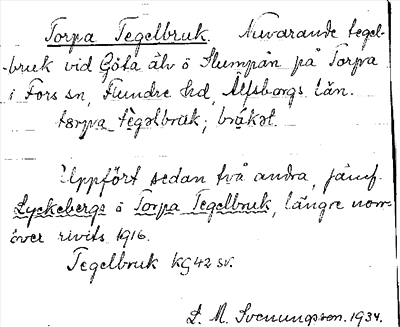 Torpa Tegelbruk. Nuvarande tegel-
bruk vid Göta älv ö Slumpån på Torpa
i Fors sn, Flundre hd, Älfsborgs län.
tɷrpa tègəlbruk; brúkət
Uppfört sedan två andra, jämf.
Lyckebergs o Torpa Tegelbruk, längre norr-
över rivits 1916.
Tegelbruk KG42 sv.
L. M. Svenungsson. 1934.